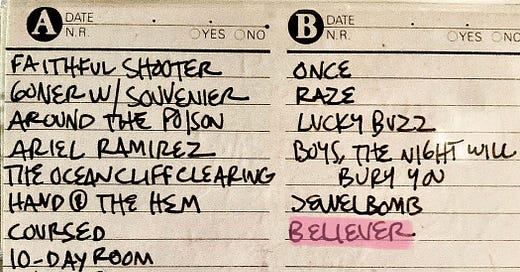 A DATE
N.R. YES NO
FAITHFUL SHOOTER
GONER W/ SOUVENIER
AROUND THE POISON
ARIEL RAMIREZ
THE OCEAN CLIFF CLEARING
HAND @ THE HEM
COURSED
10-DAY ROOM
B DATE
N.R. YES NO
ONCE
RAZE
LUCKY BUZZ
BOYS, THE NIGHT WILL
BURY YOU
JEWELBOMB
BELIEVER